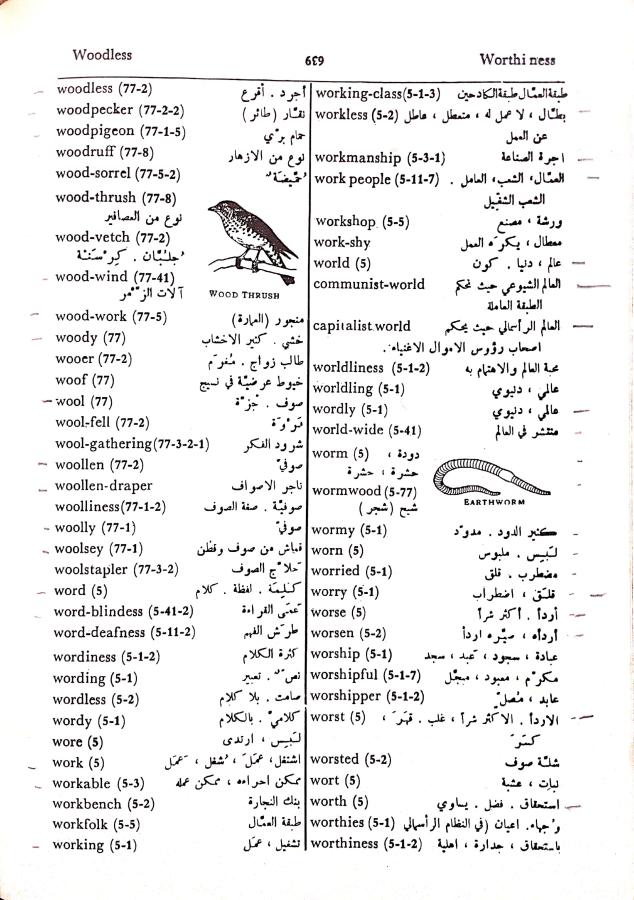 Woodless
٦٤٩
Worthi ness
woodless (77-2) أجرد . أقرع
woodpecker (77-2-2) نقّار ( طائر )
woodpigeon (77-1-5) حمام برّي
woodruff (77-8) نوع من الازهار
wood-sorrel (77-5-2) حُمّيضة
wood-thrush (77-8)
نوع من العصافير
wood-vetch (77-2)
جلبّان . كرسنّة
wood-wind (77-41)
آلات الزمر
WOOD THRUSH
wood-work (77-5) منجور (العمارة)
woody (77) خشبي . كثير الاخشاب
wooer (77-2) طالب زواج . مُغرم
woof (77) خيوط عرضيّة في نسيج
wool (77) صوف . جزّة
wool-fell (77-2) فروة
wool-gathering (77-3-2-1) شرود الفكر
woollen (77-2) صوفيّ
woollen-draper تاجر الاصواف
woolliness(77-1-2) صوفيّة . صفة الصوف
woolly (77-1) صوفيّ
woolsey (77-1) قماش من صوف وقطن
woolstapler (77-3-2) حلاّج الصوف
word (5) كلمة . لفظة . كلام
word-blindess (5-41-2) عمَى القراءة
word-deafness (5-11-2) طرَش الفهم
wordiness (5-1-2) كثرة الكلام
wording (5-1) نصّ . تعبير
wordless (5-2) صامت . بلا كلام
wordy (5-1) كلاميّ . بالكلام
wore (5) لَبِس ، ارتدى
work (5) اشتغل، عمَل ، شُغل ، عَمَل
workable (5-3) ممكن اجراءه ، ممكن عمله
workbench (5-2) بنك النجارة
workfolk (5-5) طبقة العمّال
working (5-1) تشغيل ، عمَل
working-class(5-1-3) طبقة العمّال طبقة الكادحين
workless (5-2) بطّال ، لا عمل له ، متعطل ، عاطل
عن العمل
workmanship (5-3-1) اجرة الصناعة
work people (5-11-7) العمّال، الشعب، العامل .
الشعب الشغّيل
workshop (5-5) ورشة ، مصنع
work-shy معطال ، يكره العمل
world (5) عالم ، دنيا . كون
communist-world العالم الشيوعي حيث تحكم
الطبقة العاملة
capitalist world العالم الرأسمالي حيث يحكم
اصحاب رؤوس الاموال الاغنياء.
worldliness (5-1-2) محبة العالم والاهتمام به
worldling (5-1) عالمي ، دنيوي
wordly (5-1) عالمي ، دنيوي
world-wide (5-41) منتشر في العالم
worm (5) دودة ،
حشرة ، حشرة
wormwood (5-77)
شيح ( شجر )
EARTHWORM
wormy (5-1) كثير الدود . مدوّد
worn (5) لَبيس . ملبوس
worried (5-1) مضطرب . قلق
worry (5-1) قلَق ، اضطراب
worse (5) أردأ . أكثر شراً
worsen (5-2) أردأه ، صيّره اردأ
worship (5-1) عبادة ، سجود ، عبد ، سجد
worshipful (5-1-7) مكرّم ، معبود ، مبجّل
worshipper (5-1-2) عابد ، مُصلّ
worst (5) الاردأ . الاكثر شراً ، غلب . قهَرَ ،
كسَرَ
worsted (5-2) شلّة صوف
wort (5) نبات ، عشبة
worth (5) استحقاق . فضل . يساوي
worthies (5-1) وجهاء. اعيان (في النظام الرأسمالي
worthiness (5-1-2) باستحقاق ، جدارة ، اهلية